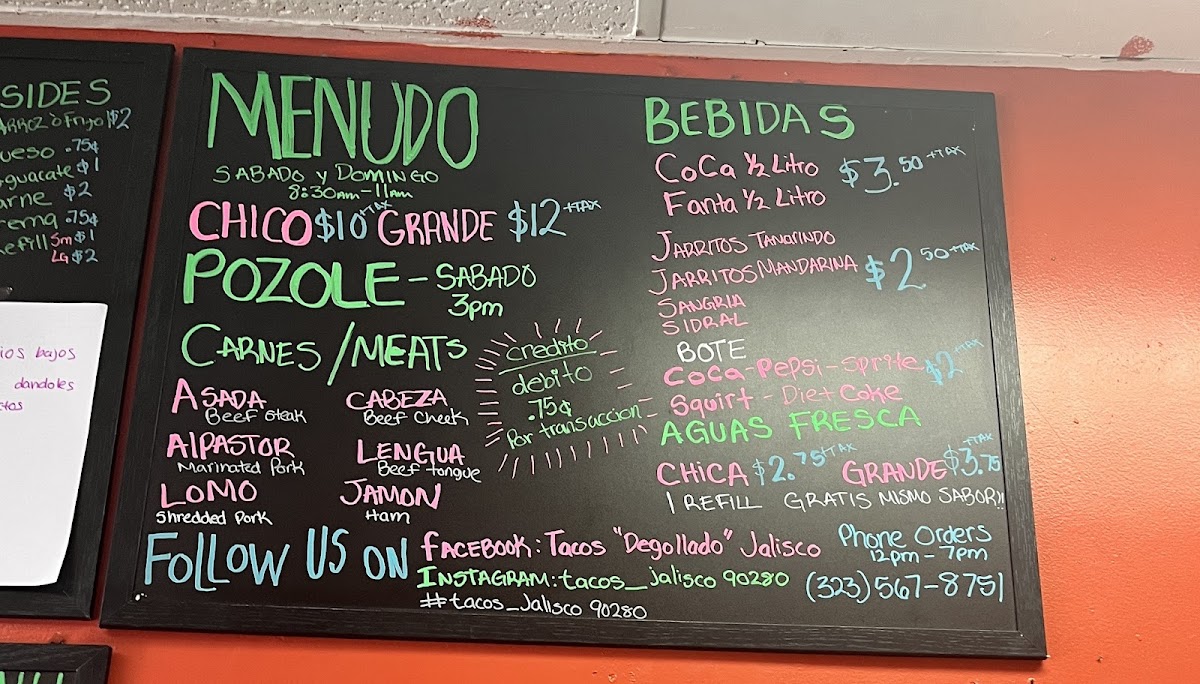 SIDES
ARROZ o Frijol $2
ueso .75¢
guacate $1
arne $2
rema .75¢
efill Sm $1
LG $2
ios bajos
dandoles
MENUDO
SABADO Y DOMINGO
8:30am-11am
CHICO $10 +TAX GRANDE $12 +TAX
POZOLE - SABADO
3pm
CARNES/MEATS
ASADA
Beef Steak
CABEZA
Beef Cheek
AlPASTOR
Marinated Pork
LENGUA
Beef tongue
LOMO
Shredded Pork
JAMON
Ham
credito
debito
.75¢
Por transaccion
BEBIDAS
CoCa 1/2 Litro $3.50 +TAX
Fanta 1/2 Litro
JARRITOS TAMARINDO
JARRITOS MANDARINA $2 50 +TAX
SANGRIA
SIDRAL
BOTE
Coca-Pepsi-Sprite $2 +TAX
Squirt - Diet Coke
AGUAS FRESCA
CHICA $2.75 +TAX GRANDE $3.75 +TAX
1 REFILL GRATIS MISMO SABOR!!
FOLLOW US ON
FACEBOOK: Tacos "Degollado" Jalisco
INSTAGRAM: tacos_jalisco 90280
#tacos_Jalisco 90280
Phone Orders
12pm - 7pm
(323) 567-8751